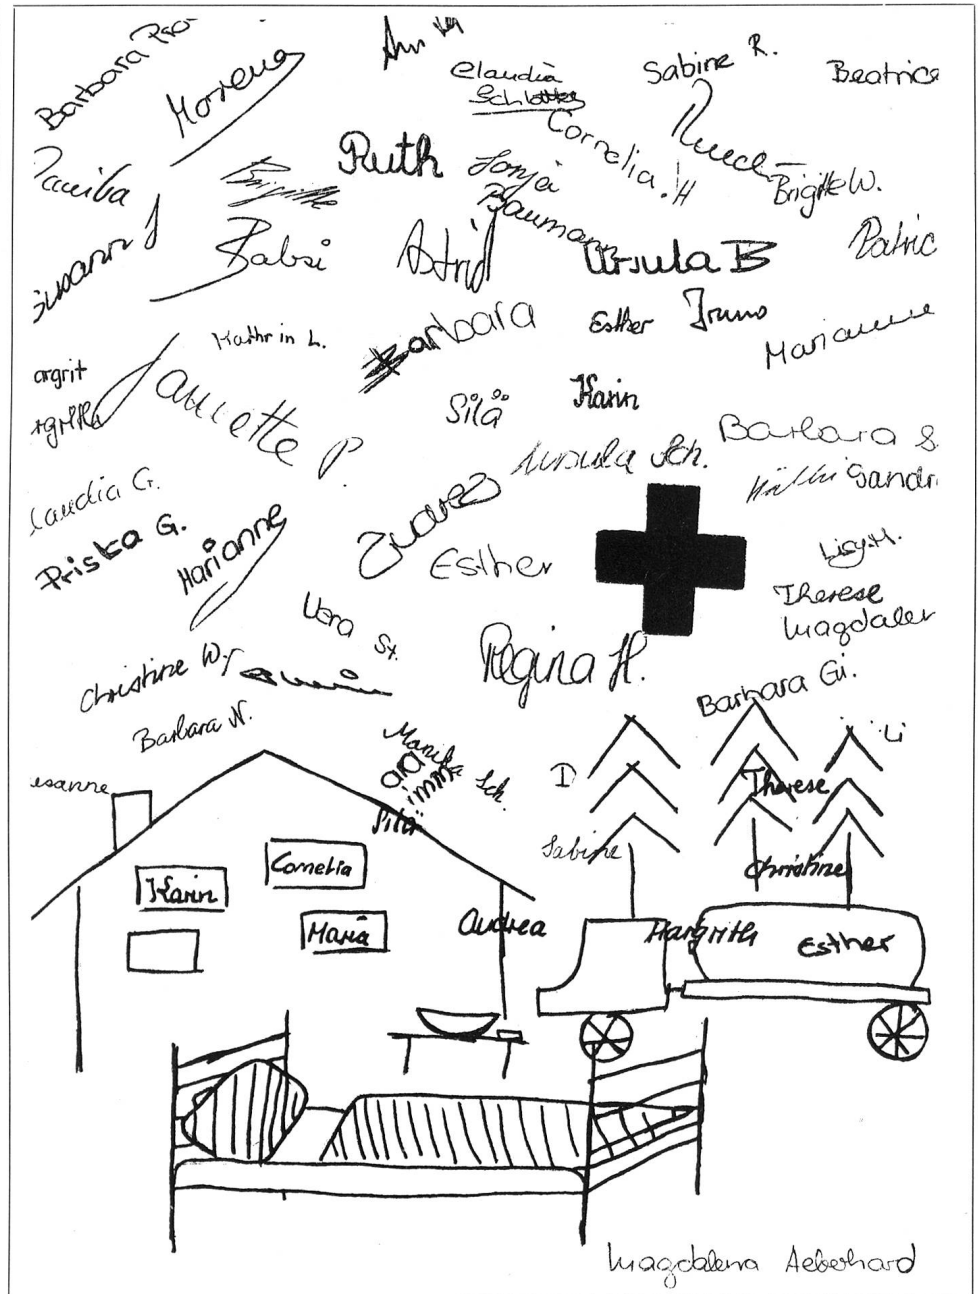 Barbara
Morrena
Claudia
Sabine R.
Beatrice
Ruth
Sonja
Baumann
Cornelia H
Brigitte W.
Brigitte
Babsi
Astrid
Ursula B
Patric
Kathrin L.
Barbara
Esther
Marianne
argrit
Jannette P.
Silä
Karin
Ursula Sch.
Barbara S
Sandr
laudia G.
Priska G.
Marianne
Esther
Therese
Magdalen
Vera St.
Regina H.
Christine W.
Barbara Gi.
Barbara N.
Monika Sch.
Li
esanne
Therese
Sabine
Christine
Cornelia
Karin
Maria
Andrea
Margrith
Esther
Magdalena Aeberhard